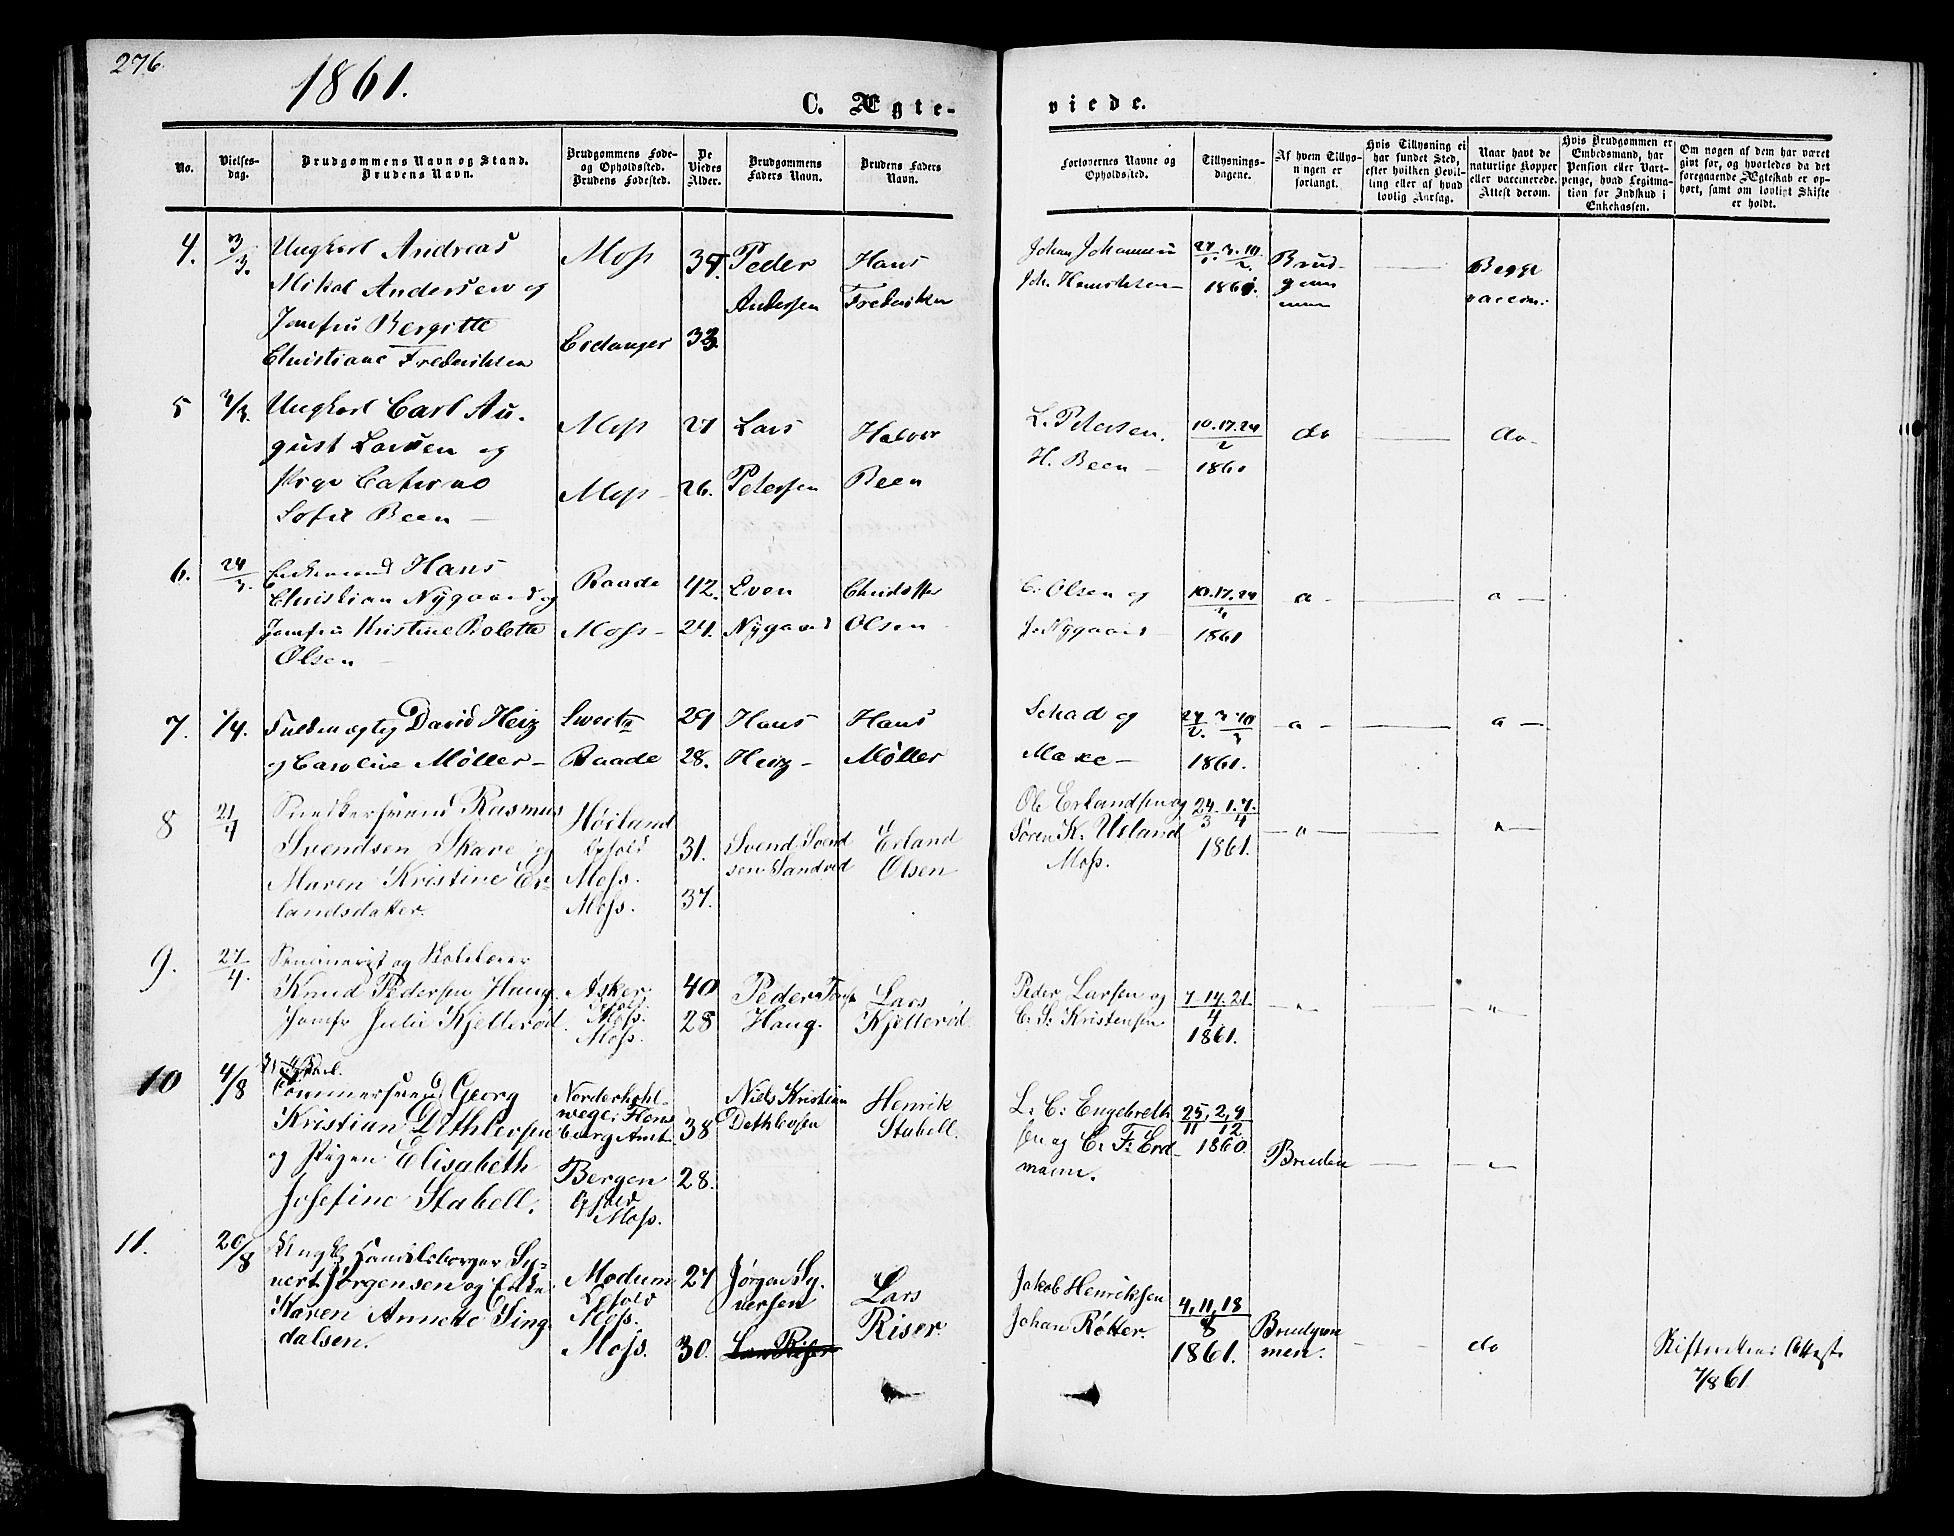 276
1861.
C. Ægte-
viede.
No.
Vielses-
dag.
Brudgommens Navn og Stand.
Brudens Navn.
Brudgommens Føde-
og Opholdssted.
Brudens Fødested.
De
Viedes
Alder.
Brudgommens
Faders Navn.
Brudens Faders
Navn.
Forlovernes Navne og
Opholdssted.
Tillysnings-
dagene.
Af hvem Tillys-
ningen er
forlangt.
Hvis Tillysning ei
har fundet Sted,
efter hvilken Bevil-
ling eller af hvad
lovlig Aarsag.
Naar havt de
naturlige Kopper
eller vaccinerede.
Attest derom.
Hvis Brudgommen er
Embedsmand, har
Pension eller Vart-
penge, hvad Legitima-
tion for Indskud i
Enkekassen.
Om nogen af dem har været
gift før, og hvorledes da det
foregaaende Ægteskab er op-
hørt, samt om lovligt Skifte
er holdt.
4. 3/3. Ungkarl Andreas
Mikal Andersen og
Jomfru Bergitte
Christiane Frederiksen
Moss
Eidanger
33.
Peder
Andersen
Hans
Frederiksen
Johan Johannesen
Joh. Henriksen
1861.
Brud-
gom
men
Begge
vaccin:
5 Ungkarl Carl Au-
gust Larsen og
Pige
Sofie Been
Moss
Moss
27
26.
Lars
Petersen
Halvor
Been
L. Petersen.
H. Been
10.17.24/2
1861
do
do
6. 24/3. Enkemand Hans
Christian Nygaard og
Jomfru Kristine Bolette
Olsen
Raade
Moss
42.
24.
Even
Nygaard
Olsen
C. Olsen og
J. Nygaard
10.17.24
1861
7. 1/4. David Heiz
og Caroline Møller
Sweitz
Raade
29
28.
Hans
Heiz
Hans
Møller
Schad og
1861.
8 21/4 Snedkersvend Rasmus
Svendsen Skare og
Maren Kristine Er-
landsdatter.
Høiland
Ophold
Moss.
Moss.
31.
37.
Svend Svend
sen Sandved
Erland
Olsen
Ole Erlandsen og
Søren K. Ueland
Moss.
24/3. 1.7./4
1861.
9. 27/4. Seminarist og Skolelærer
Knud Pedersen Haug.
Jomfr Julie Kjellerød.
Asker,
Ophold
Moss.
Moss.
40
28
Peder
Haug.
Lars
Kjellerød.
Peder Larsen og
C. S. Kristensen
7.14.21./4
1861.
10 4/8
Tømmersvend Georg
Kristian Dethlefsen
og Pigen Elisabeth
Josefine Stabell.
38
Bergen
Ophold
Moss.
28.
Niels Kristian
Dethlefsen
Henrik
Stabell.
L. C. Engebreth
sen og C. F. Erd-
mann.
25/11, 2,9/12
1860
Bruden
11. 20/8 Ungk. Handelsborger Sy-
vert Jørgensen og Enke
Karen Annette Sing
dalsen.
Modum
Ophold
Moss.
Moss.
27
30.
Jørgen Sy-
versen
Lars Riser
Lars
Riser.
Jakob Henriksen
Johan Røtter.
4, 11, 18/8
1861.
Brudgom
men.
do
Skifterettens Attest
7/8 61.